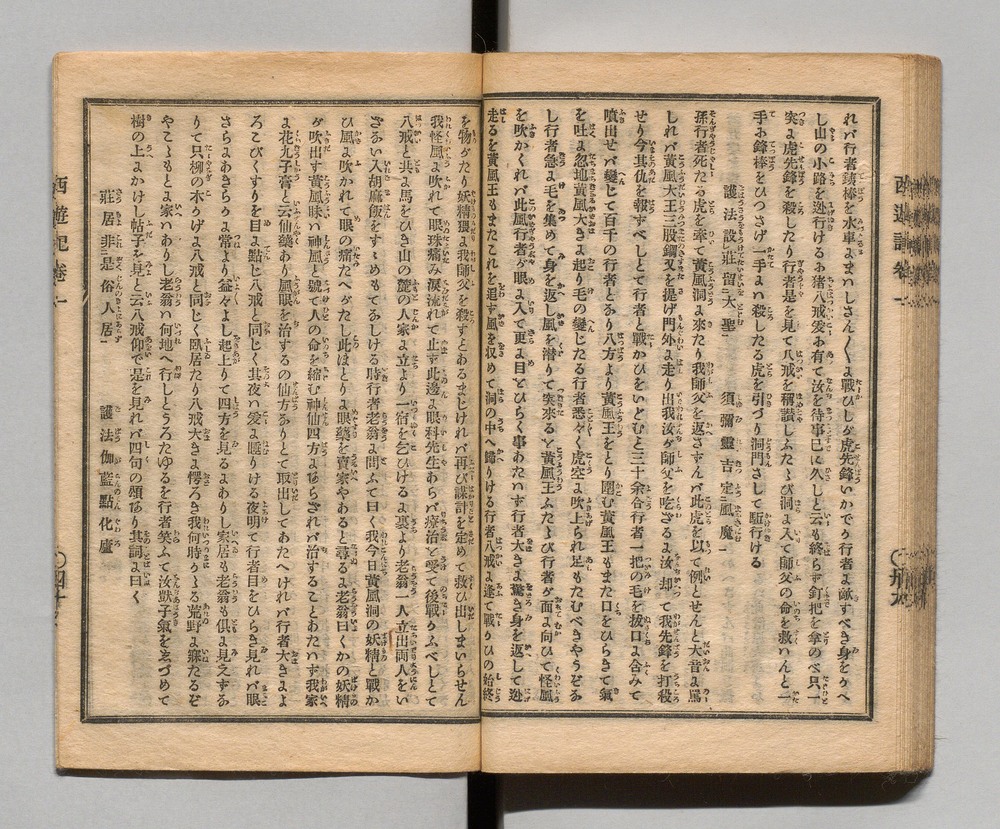 れバ行者鉄棒を水車よまハしさん〴〵よ戰ひしが虎先鋒いかでり行者よ敵すべき身をかへ
し山の小路を迯行けるお猪八戒爰お有て汝を待事已に久しと云も終らず釘把を拿のべ只一
突よ虎先鋒を殺したり行者是を見て八戒を稱讃しふたゝび洞よ入て師父の命を救ハんと一
手お鉄棒をひつさげ一手よハ殺したる虎を引づり洞門さして駈行ける
護法設莊留大聖 須彌靈吉定風魔
孫行者死たる虎を牽て黄風洞よ來たり我師父を返さずんバ此虎を以て例とせんと大音よ罵
しれバ黄風大王三股鋼叉を提げ門外よ走り出我汝が師父を吃ざるよ汝却て我先鋒を打殺
せり今其仇を報ずべしとて行者と戰かひをいどむと三十余合行者一把の毛を拔口よ含みて
噴出せバ變じて百千の行者とあり八方より黄風王をとり圍む黄風王もまた口をひらきて氣
を吐バ忽地黄風大きよ起り毛の變じたる行者悉く虎空よ吹上られ足もたむべきやうぞあ
し行者急よ毛を集めて身を返し風を潜りて突來ると黄風王ふたゝび行者が面よ向ひて怪風
を吹かくれバ此風行者が眼よ入て更よ目とひらく事あたハず行者大きよ驚き身を返して迯
走るを黄風王もまたこれを追ず風を収めて洞の中へ歸りける行者八戒よ逢て戰りひの始終
を物がたり妖精猥よ我師父を殺すとあるまじけれバ再び謀計を定めて救ひ出しまいらせん
我怪風よ吹れて眼珠痛み涙流れて止ず此邊よ眼科先生あらバ療治と受て後戰りふべしとて
八戒と共よ馬をひき山の麓の人家よ立より一宿を乞ひけるよ裏より老翁一人立出両人をい
ざあい入胡麻飯をすゝめもてあしける時行者老翁よ問ふて曰く我今日黄風洞の妖精と戰か
ひ風よ吹かれて眼の痛たへがたし此ほとりよ眼藥を賣家やあると尋るよ老翁曰くかの妖精
が吹出す黄風味ハ神風と號て人の命を縮む神仙四方よあらざれバ治することあたハず我家
よ花九子膏と云仙藥あり風眼を治するの仙方ありとて取出してあたへけれバ行者大きよよ
ろこびくすりを目よ點じ八戒と同じく其夜ハ爰よ睡りける夜明て行者目をひらき見れバ眼
さらよあきらりよ常より益々よし起上りて四方を見るよありし家居も老翁も俱よ見えずあ
りて只柳の木りげよ八戒と同じく臥居たり八戒大きよ愕ろき我何時りゝる荒野よ寐たるぞ
やこゝもとよ家ハありし老翁ハ何地へ行しとうろたゆるを行者笑ふて汝獃子氣をゑづめて
樹の上よかけし帖子を見よと云八戒仰で是を見れバ四句の頌あり其詞よ曰く
莊居非是俗人居 護法伽藍點化廬
西遊記卷一